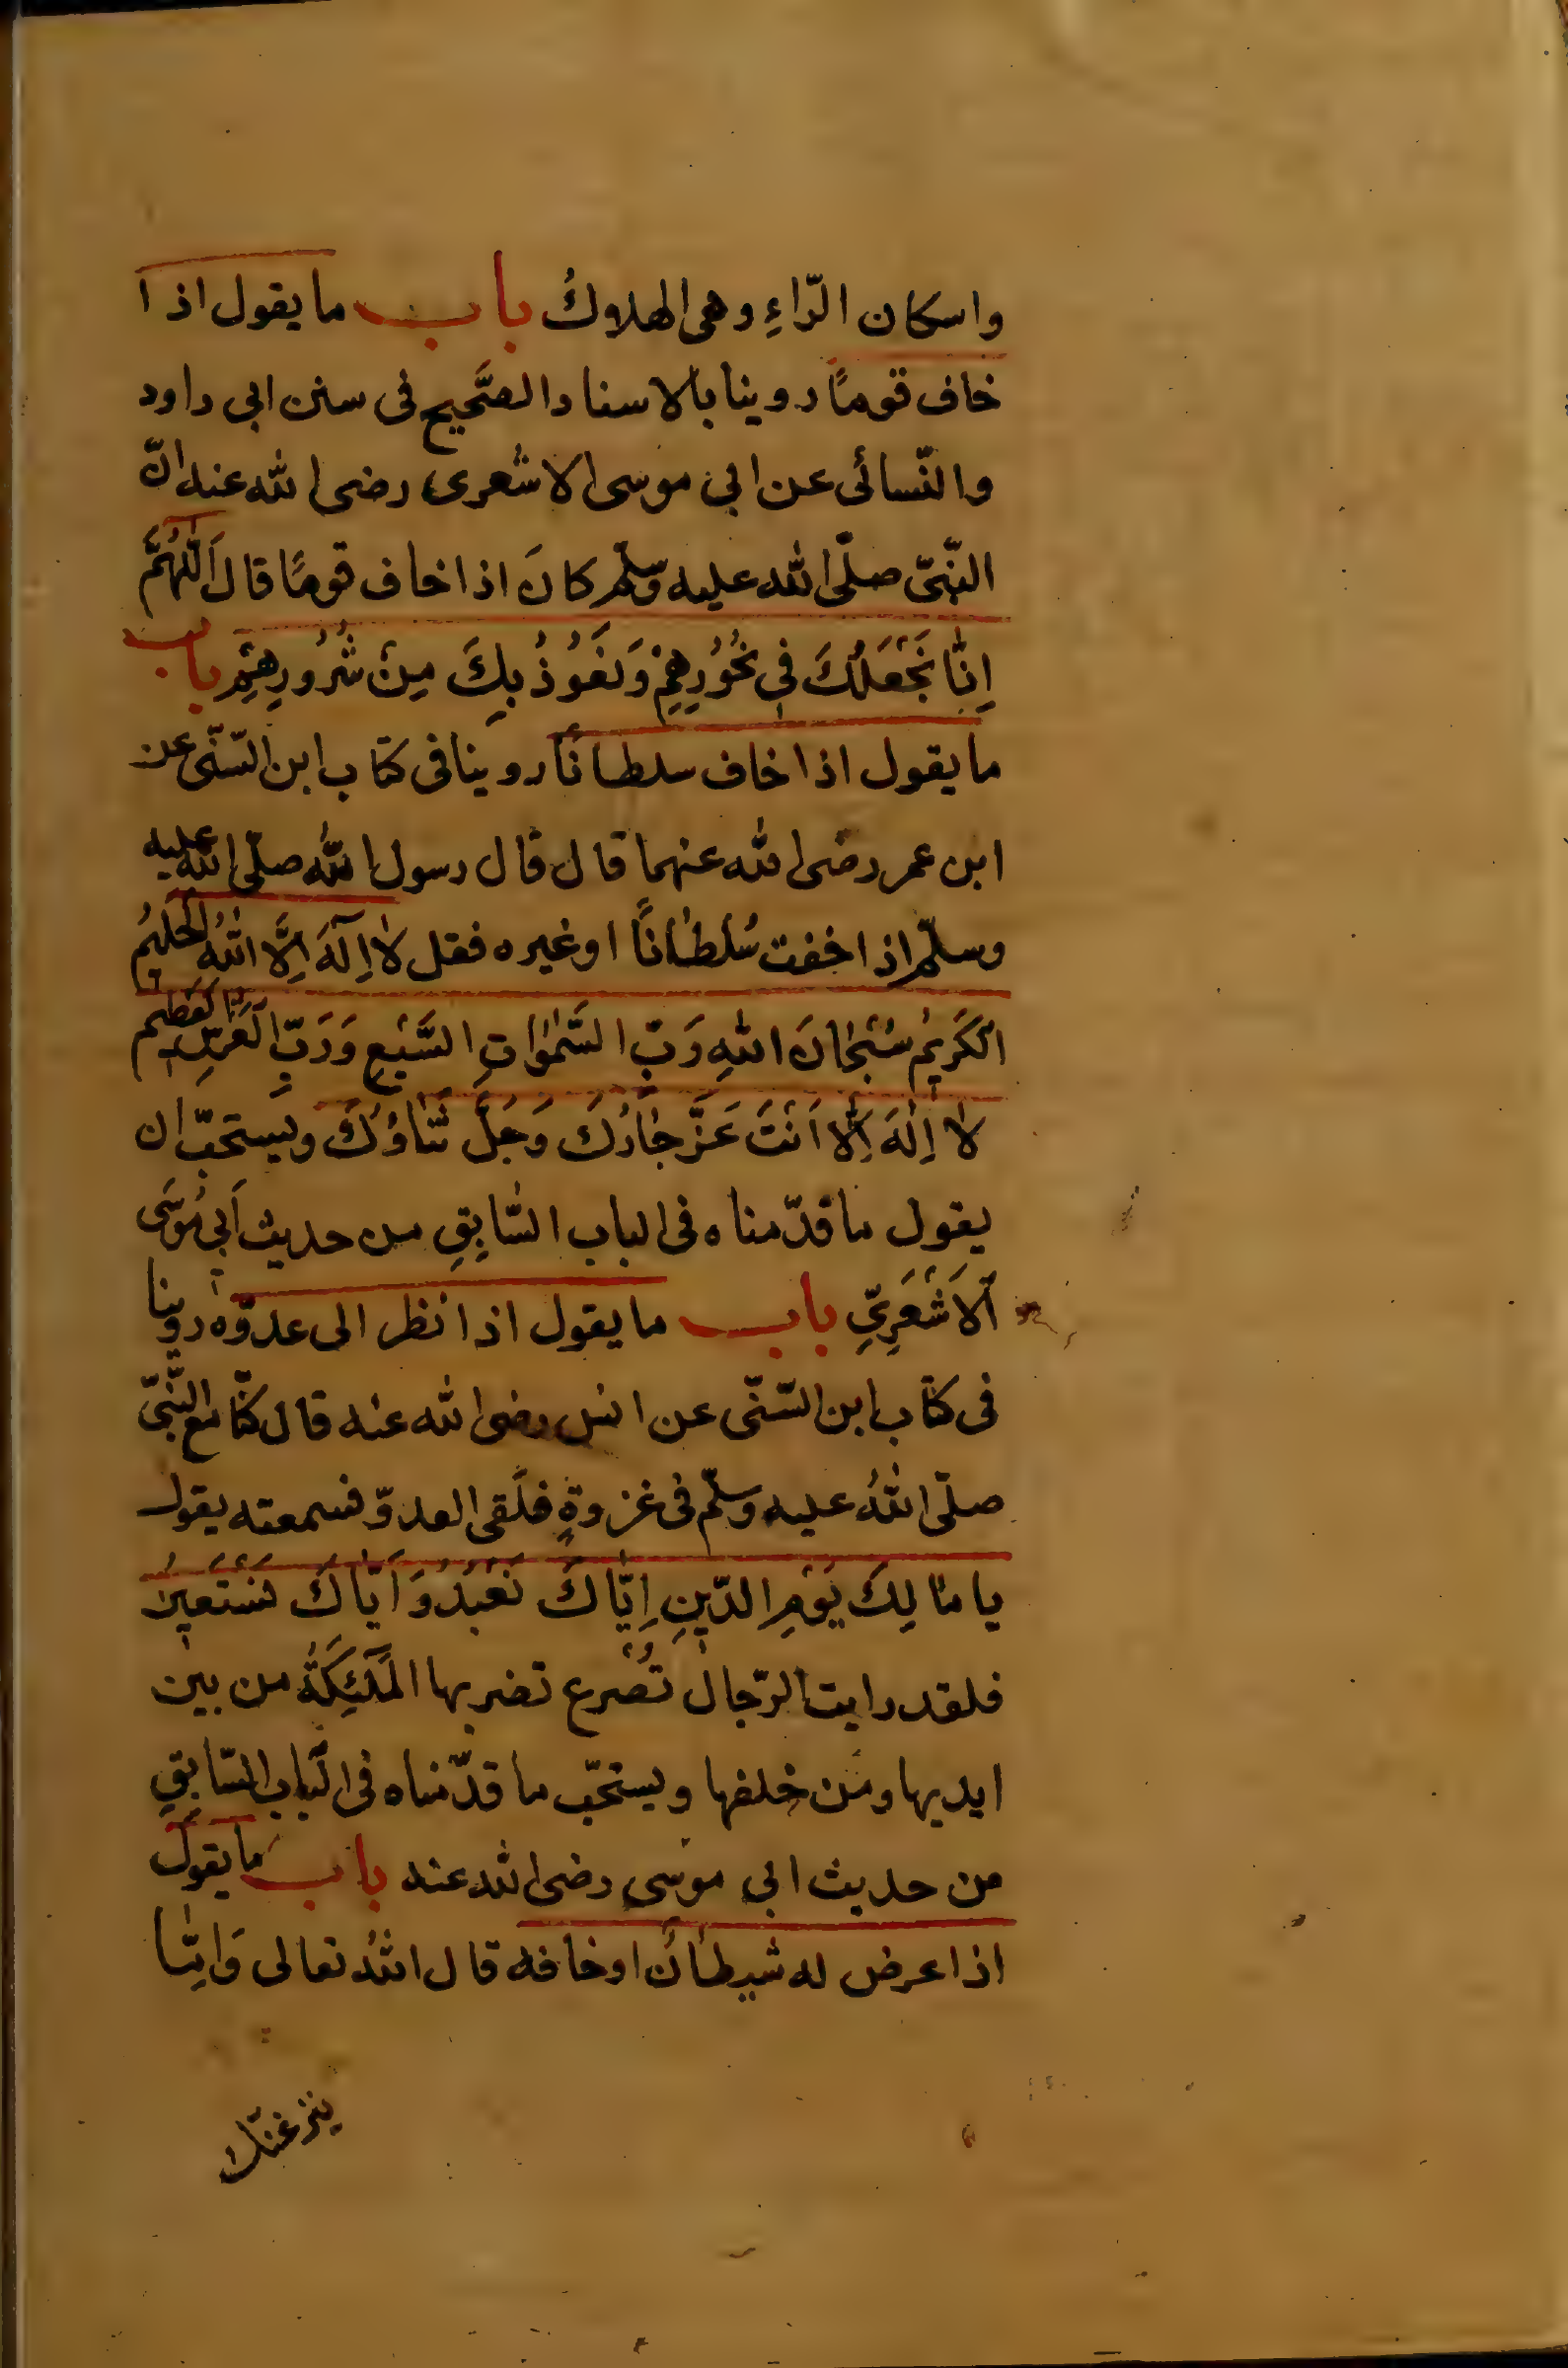 واسكان الرّاءِ وهى الهلاكُ باب ما يقول اذا
خاف قومًا روينا بالاسناد الصَّحيح فى سنن ابى داود
والنّسائى عن ابى موسى الاشعرى رضى الله عنه انّ
النّبىّ صلّى الله عليه وسلّم كانَ اذا خاف قومًا قالَ اَللّٰهُمَّ
اِنّٰا نَجْعَلُكَ فى نُحُوُرِهِمْ وَنَعُوْذُ بِكَ مِنْ شُرُورِهِمْ باب
ما يقول اذا خاف سلطانًا روينا فى كتاب ابن السّنّى عن
ابن عمر رضى الله عنهما قال قال رسول الله صلّى الله عليه
وسلّم اذا خفت سُلطٰانًا او غيره فقل لاٰ اِلٰهَ اِلَّا اللّٰهُ الحَليمُ
الكَرِيمُ سُبْحٰانَ اللّٰهِ رَبّ السَّمٰوٰاتِ السَّبْعِ وَرَبِّ العَرْشِ العَظيم
لاٰ اِلٰهَ اِلّا اَنْتَ عَزَّ جٰارُكَ وَجَلَّ ثَنٰاؤُكَ ويستحبّ ان
يقول ما قدّمناه فى الباب السّٰابِقِ من حديث اَبى مُوسَى
اَلاَشْعَرِيّ باب ما يقول اذا نظر الى عدوّه روينا
فى كتاب ابن السّنّى عن انس رضى الله عنه قال كنّا مع النّبىّ
صلّى اللّٰهُ عليه وسلّم فى غزوةٍ فلَقى العدوّ فسمعته يقول
يا مٰالِكَ يَوْمِ الدّينِ اِيّٰاكَ نَعْبُدُ وَاَيّٰاكَ نَسْتَعينُ
فلقد رايت الرّجال تُصْرع تضربها المَلٓئِكَةُ من بين
ايديها ومن خلفها ويستحبّ ما قدّمناه فى البٰاب السّابِقِ
من حديث ابى موسى رضى الله عنه باب ما يقول
اذا عرض له شيطٰانٌ او خافه قال اللّٰهُ تعالى وَاِمّٰا
ينزغنك